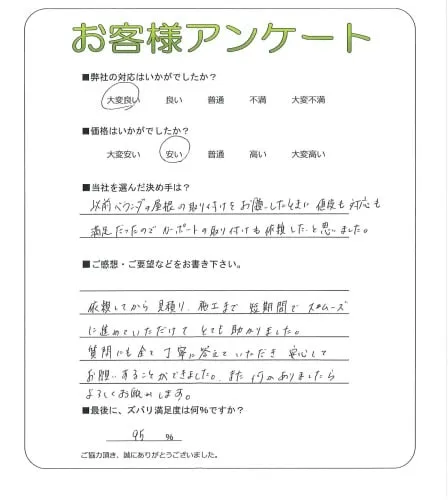 お客様アンケート
■弊社の対応はいかがでしたか？
大変良い 良い 普通 不満 大変不満
■価格はいかがでしたか？
大変安い 安い 普通 高い 大変高い
■当社を選んだ決め手は？
以前ベランダの屋根の取り付けをお願いしたときに値段も対応も
満足だったのでカーポートの取り付けも依頼したいと思いました。
■ご感想・ご要望などをお書き下さい。
依頼してから見積り、施工まで短期間でスムーズ
に進めていただけてとても助かりました。
質問にも全て丁寧に答えていただき安心して
お願いすることができました。また何かありましたら
よろしくお願いします。
■最後に、ズバリ満足度は何%ですか？
95 %
ご協力頂き、誠にありがとうございました。